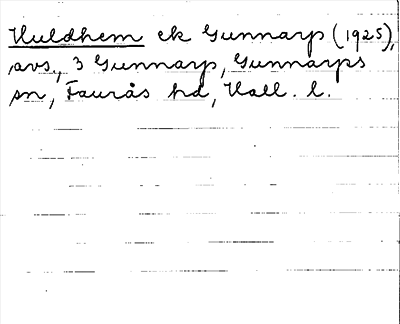 Huldhem ek Gunnarp (1925),
avs., 3 Gunnarp, Gunnarps
sn, Faurås hd, Hall. l.